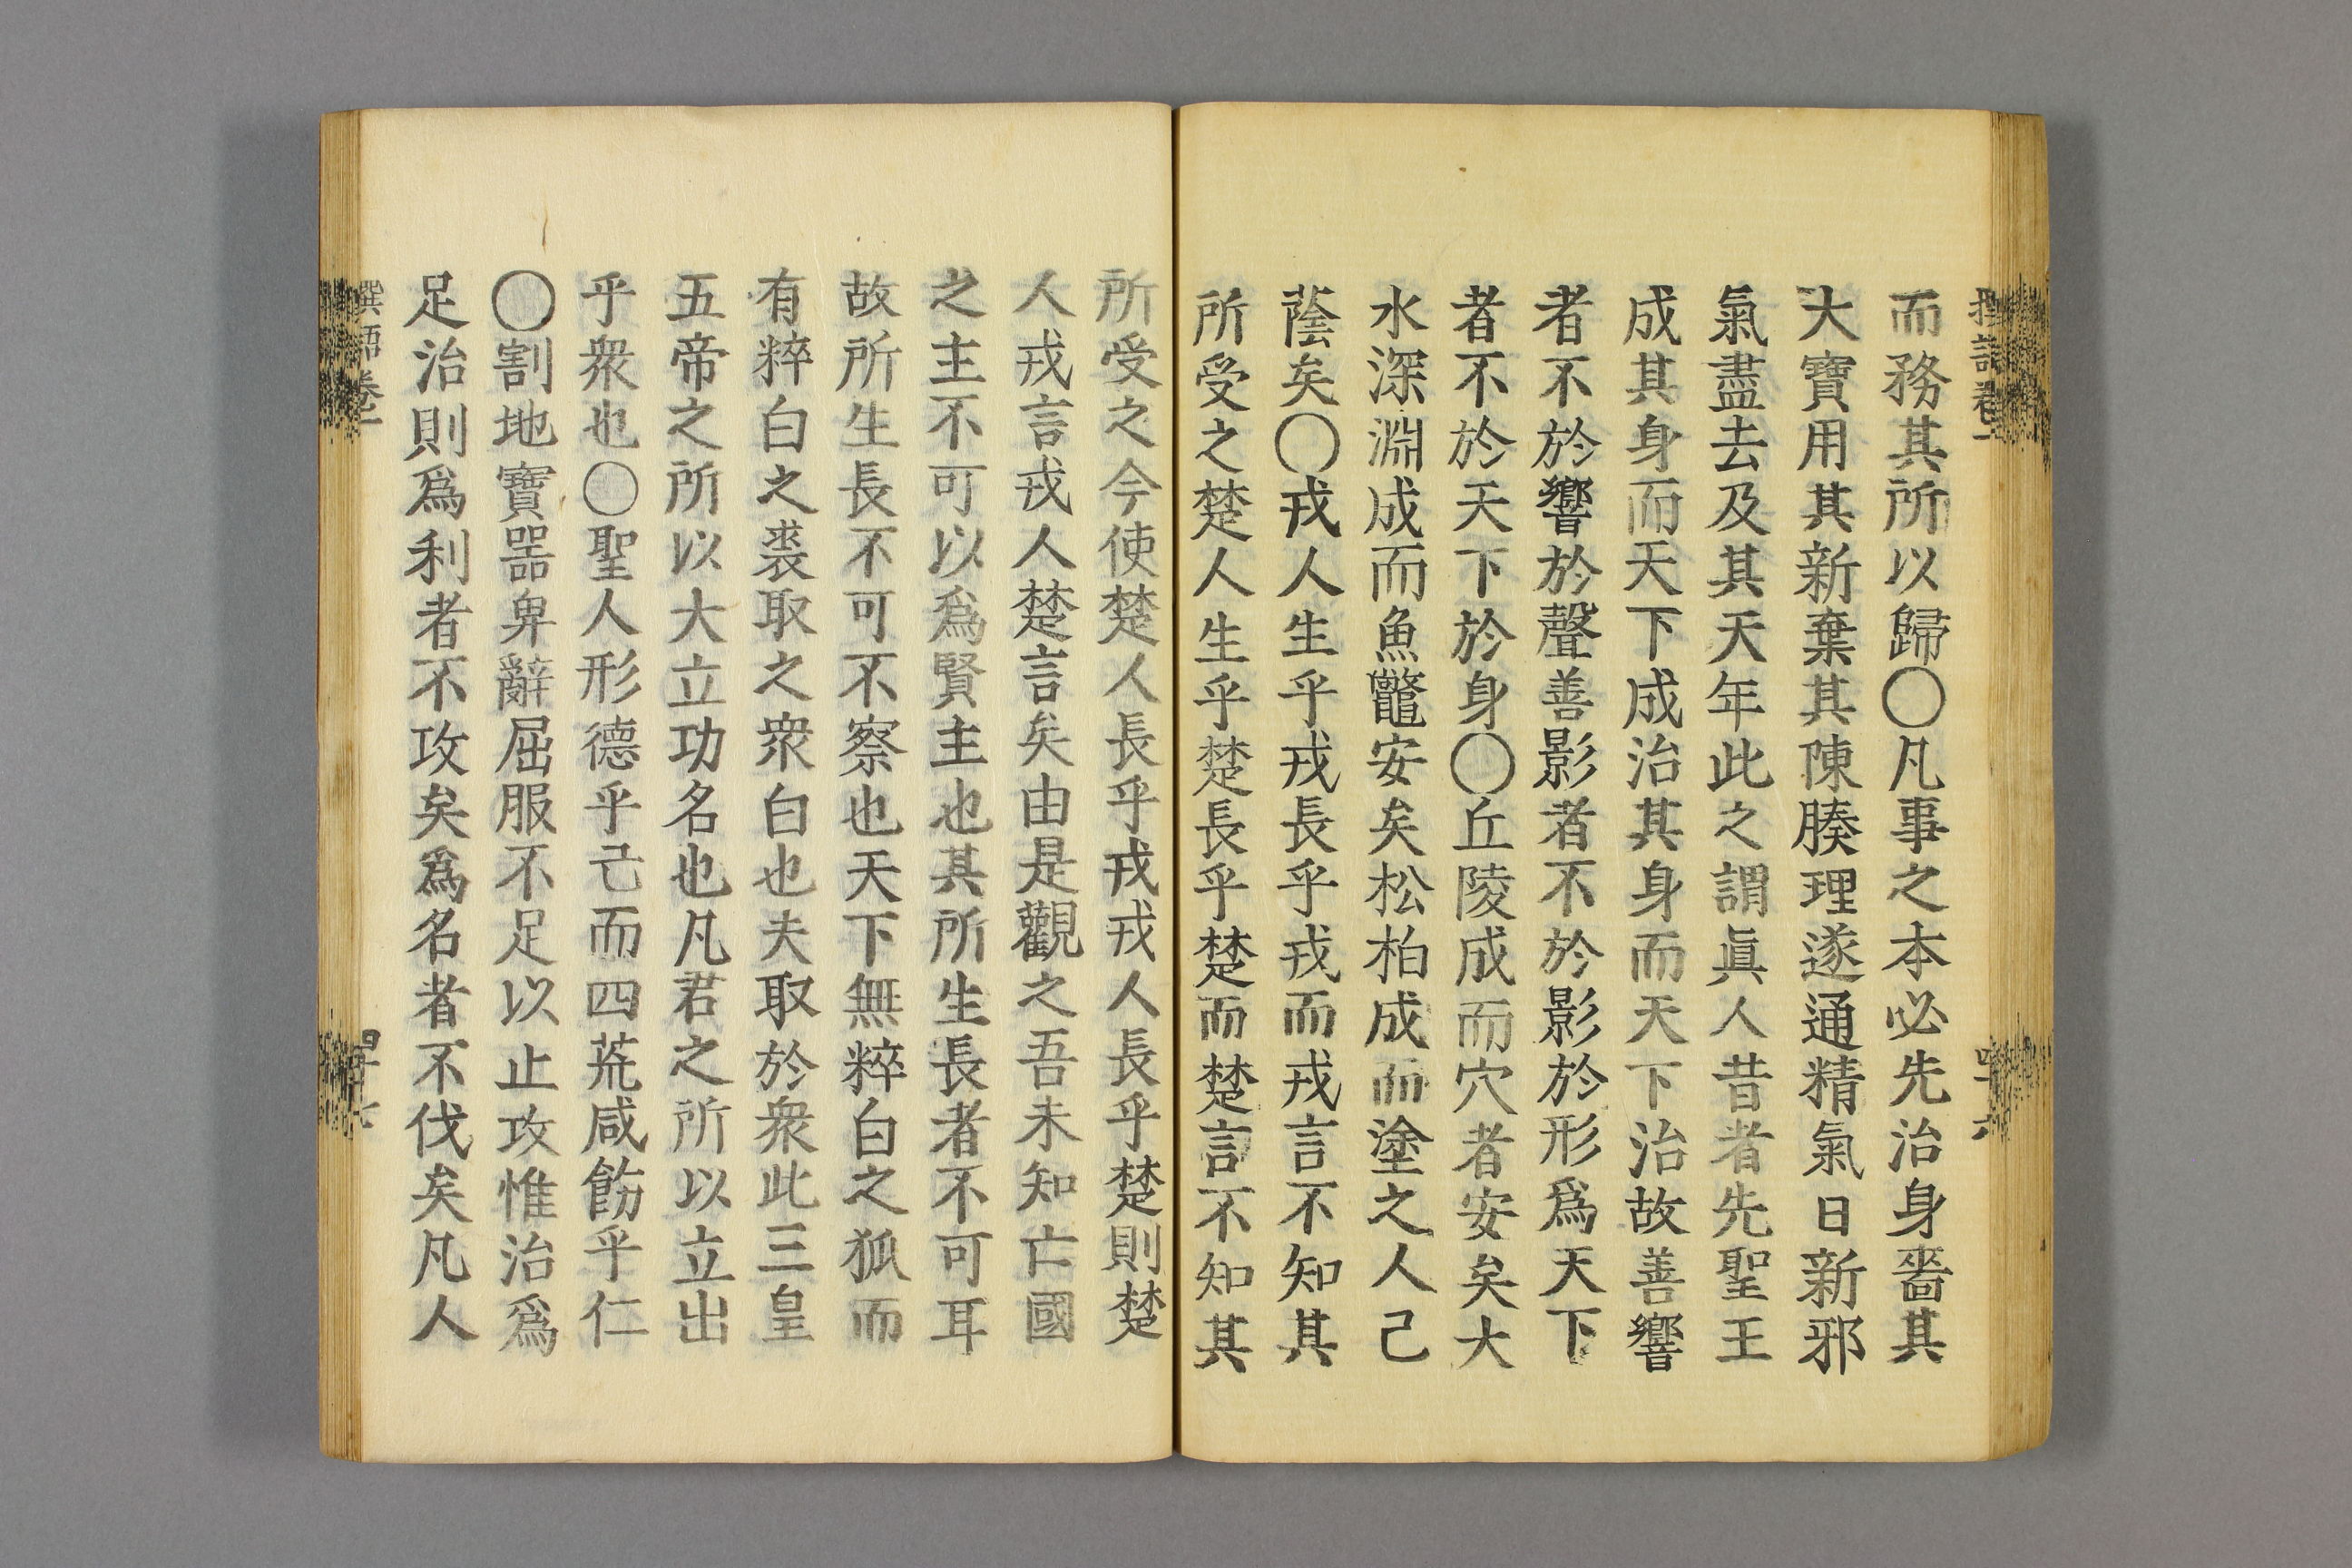 而務其所以歸〇凡事之本必先治身嗇其
大寶用其新棄其陳腠理遂通精氣日新邪
氣盡去及其天年此之謂眞人昔者先聖王
成其身而天下成治其身而天下治故善響
者不於響於聲善影者不於影於形爲天下
者不於天下於身〇丘陵成而穴者安矣大
水深淵成而魚鼈安矣松柏成而塗之人已
蔭矣〇戎人生乎戎長乎戎而戎言不知其
所受之楚人生乎楚長乎楚而楚言不知其
所受之今使楚人長乎戎戎人長乎楚則楚
人戎言戎人楚言矣由是觀之吾未知亡國
之主不可以爲賢主也其所生長者不可耳
故所生長不可不察也天下無粹白之狐而
有粹白之裘取之衆白也夫取於衆此三皇
五帝之所以大立功名也凡君之所以立出
乎衆也〇聖人形德乎己而四荒咸飭乎仁
〇割地寶噐卑辭屈服不足以止攻惟治爲
足治則爲利者不攻矣爲名者不伐矣凡人